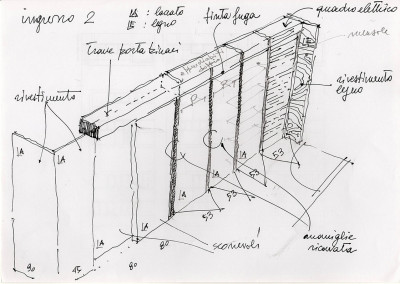 ingresso 2
LA : laccato
LE : legno
finta fuga
quadro elettrico
mensole
trave porta binari
rivestimento
rivestimento
legno
P
LA
LA
LA
LA
LA
LA
LA
LA
53
53
53
53
maniglie
ricavata
scorrevoli
90
45
80
80